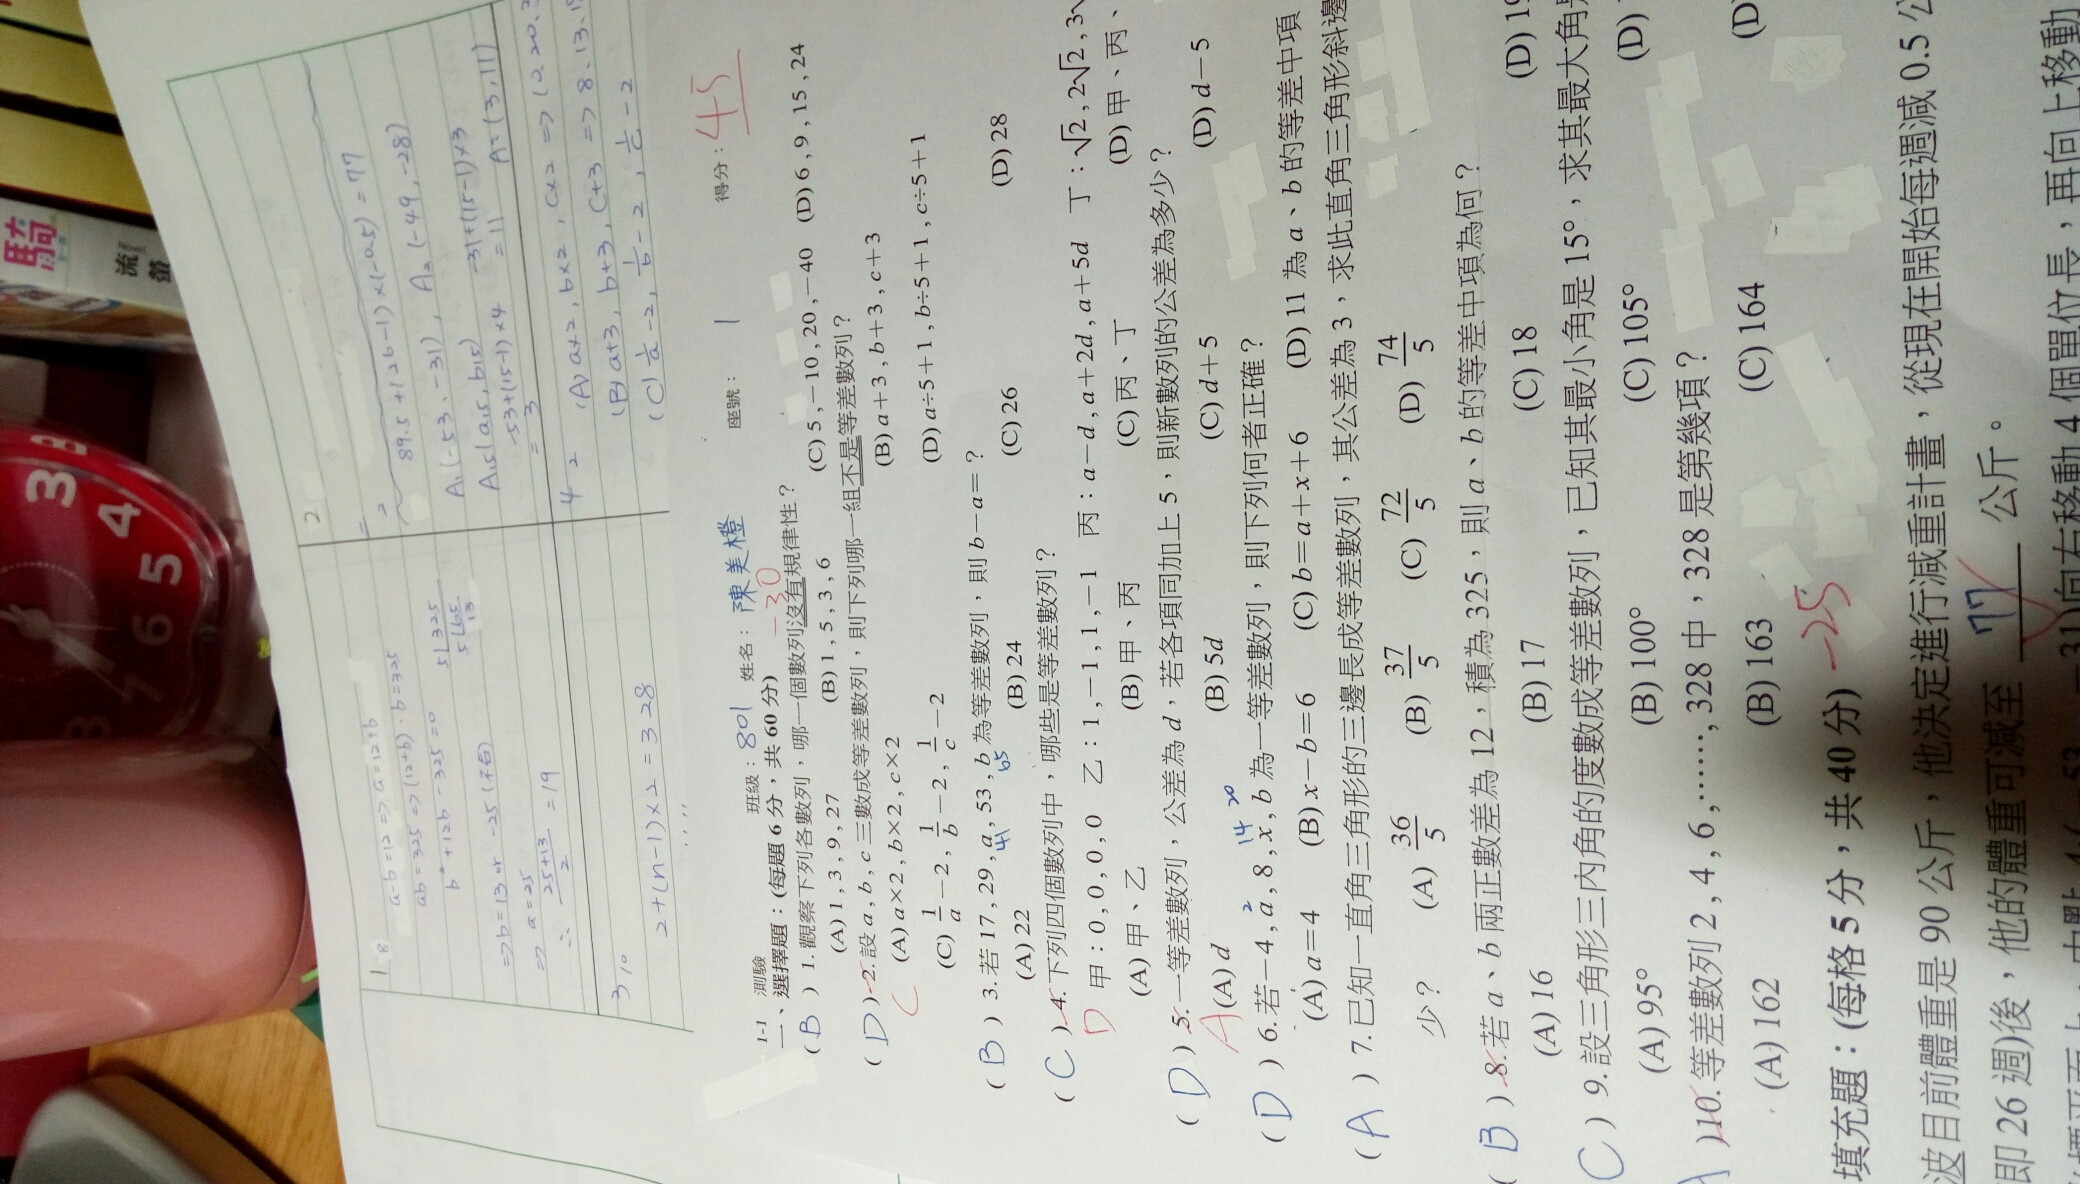 騎
流
螢
3
4
5
6
7
8
1
8
a-b=12 => a=12+b
ab=325 => (12+b)·b=325
b²+12b-325=0
5|325
5|65
13
=> b=13 or -25(不合)
=> a=25
∴ 25+13/2 = 19
3 10
2+(n-1)×2=328
2
89.5+(26-1)×(-0.5)=77
A₁(-53、-31), A₂(-49,-28)
A₁₅(a₁₅, b₁₅) -31+(15-1)×3
-53+(15-1)×4 = 11
= 3 A=(3,11)
4 2
(A) a×2, b×2, c×2 =>
(B) a+3, b+3, c+3 => 8、13、
(C) 1/a-2, 1/b-2, 1/c-2
1-1 測驗 班級：801 姓名：陳美橙 座號：1 得分：45
一、選擇題：(每題 6 分，共 60 分) -30
( B ) 1. 觀察下列各數列，哪一個數列沒有規律性？
(A) 1 , 3 , 9 , 27 (B) 1 , 5 , 3 , 6 (C) 5 , －10 , 20 , －40 (D) 6 , 9 , 15 , 24
( D ) 2. 設 a , b , c 三數成等差數列，則下列哪一組不是等差數列？
C
(A) a×2 , b×2 , c×2 (B) a＋3 , b＋3 , c＋3
(C) 1/a－2 , 1/b－2 , 1/c－2 (D) a÷5＋1 , b÷5＋1 , c÷5＋1
( B ) 3. 若 17 , 29 , a , 53 , b 為等差數列，則 b－a＝？
41 65
(A) 22 (B) 24 (C) 26 (D) 28
( C ) 4. 下列四個數列中，哪些是等差數列？
D
甲：0 , 0 , 0 , 0 乙：1 , －1 , 1 , －1 丙：a－d , a＋2d , a＋5d 丁：√2 , 2√2 , 3
(A) 甲、乙 (B) 甲、丙 (C) 丙、丁 (D) 甲、丙、
( D ) 5. 一等差數列，公差為 d，若各項同加上 5，則新數列的公差為多少？
A
(A) d (B) 5d (C) d＋5 (D) d－5
( D ) 6. 若－4 , a , 8 , x , b 為一等差數列，則下列何者正確？
2 14 20
(A) a＝4 (B) x－b＝6 (C) b＝a＋x＋6 (D) 11 為 a、b 的等差中項
( A ) 7. 已知一直角三角形的三邊長成等差數列，其公差為 3，求此直角三角形斜邊
少？ (A) 36/5 (B) 37/5 (C) 72/5 (D) 74/5
( B ) 8. 若 a、b 兩正數差為 12，積為 325，則 a、b 的等差中項為何？
(A) 16 (B) 17 (C) 18 (D) 19
C ) 9. 設三角形三內角的度數成等差數列，已知其最小角是 15°，求其最大角
(A) 95° (B) 100° (C) 105° (D)
A )10. 等差數列 2 , 4 , 6 , ……, 328 中，328 是第幾項？
(A) 162 (B) 163 (C) 164 (D
填充題：(每格 5 分，共 40 分) -25
波目前體重是 90 公斤，他決定進行減重計畫，從現在開始每週減 0.5 公
即 26 週)後，他的體重可減至 77 公斤。
31)向右移動 4 個單位長，再向上移動